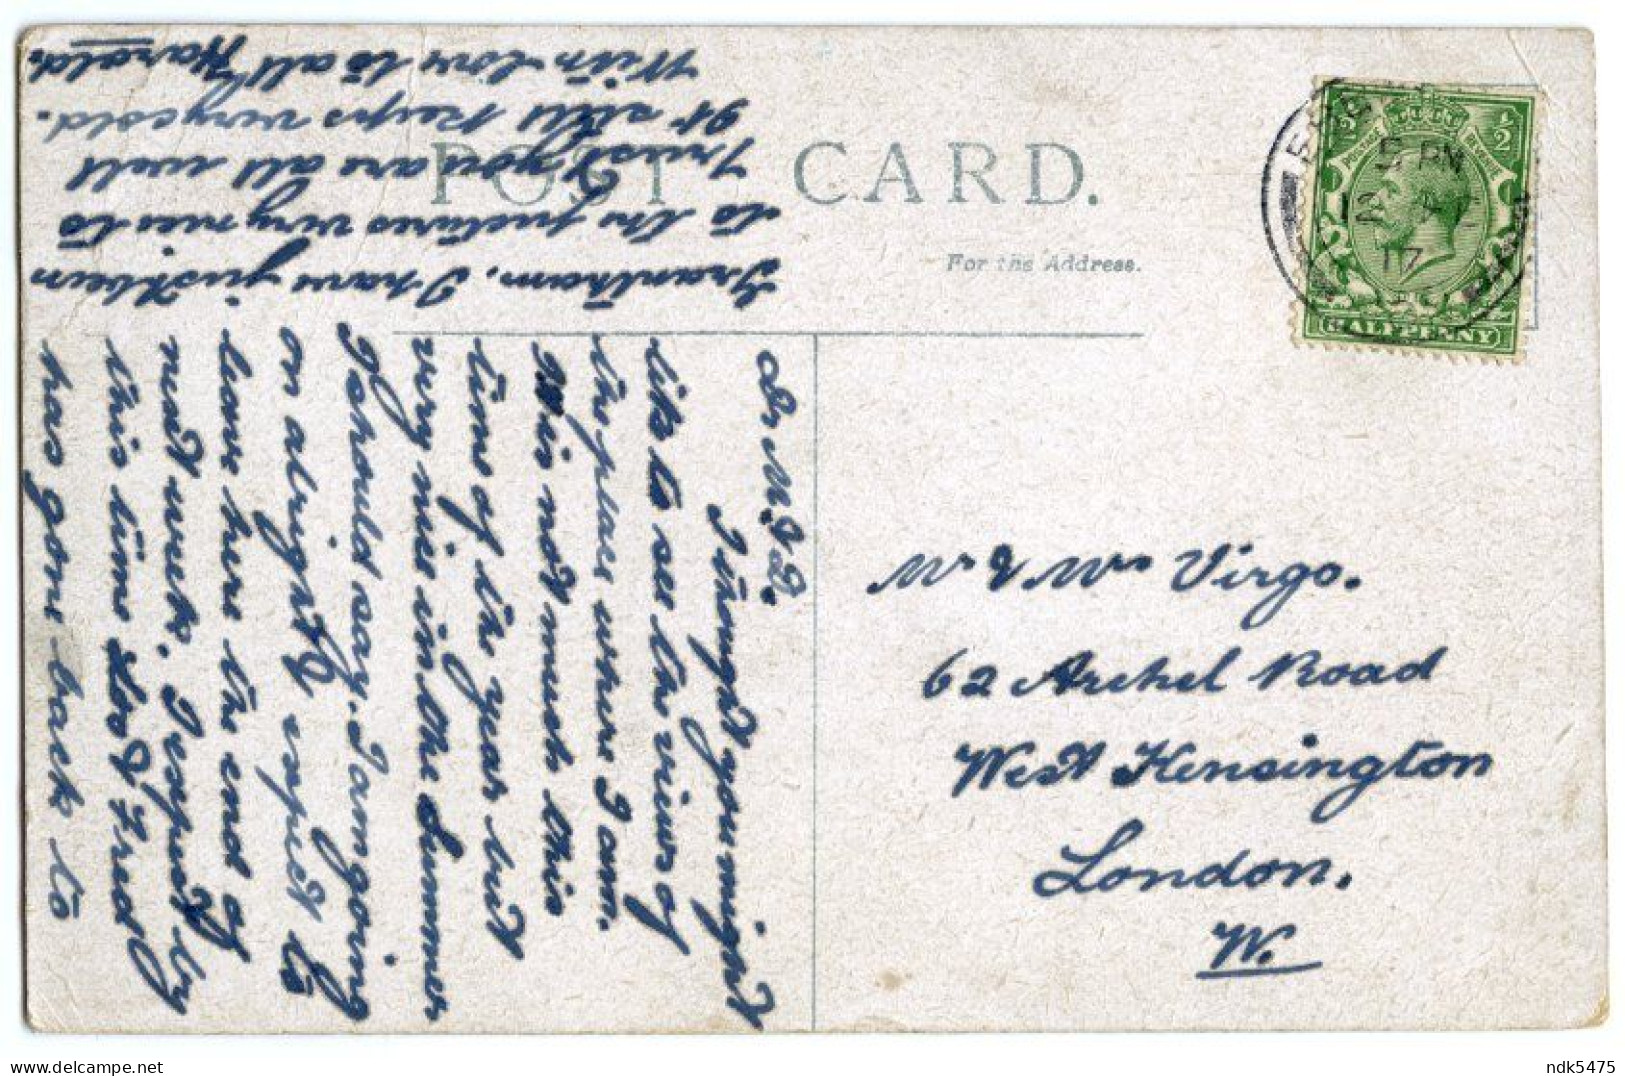 POST CARD.
For the Address.
HALFPENNY
5 PM
17
Dr M. & D.
I thought you might
like to see the views of
the place where I am.
His not much this
time of the year but
very nice in the Summer
I should say. I am going
on alright & expect to
leave here the end of
next week. I expect by
this time Fred
has gone back to
Grantham. I have just been
to the pictures very nice to
Trust you are all well
It still keeps very cold.
With love to all Harold.
Mr & Mrs Virgo.
62 Archel Road
West Kensington
London.
W.
ndk5475